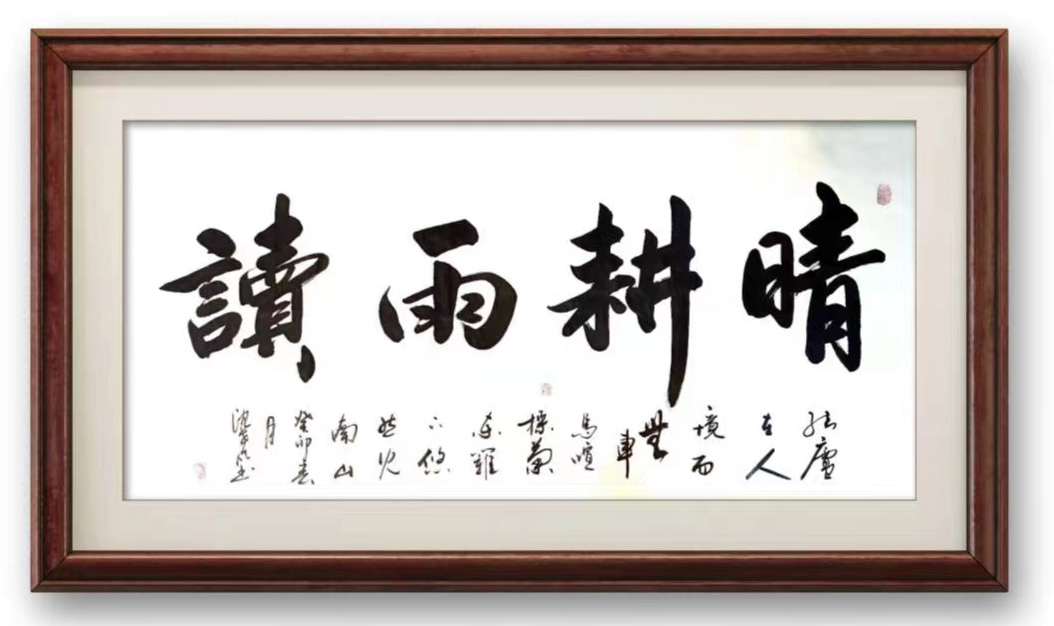 晴耕雨讀
结廬
在人
境而
無
車
馬喧
採菊
东籬
下悠
然见
南山
癸卯春
月